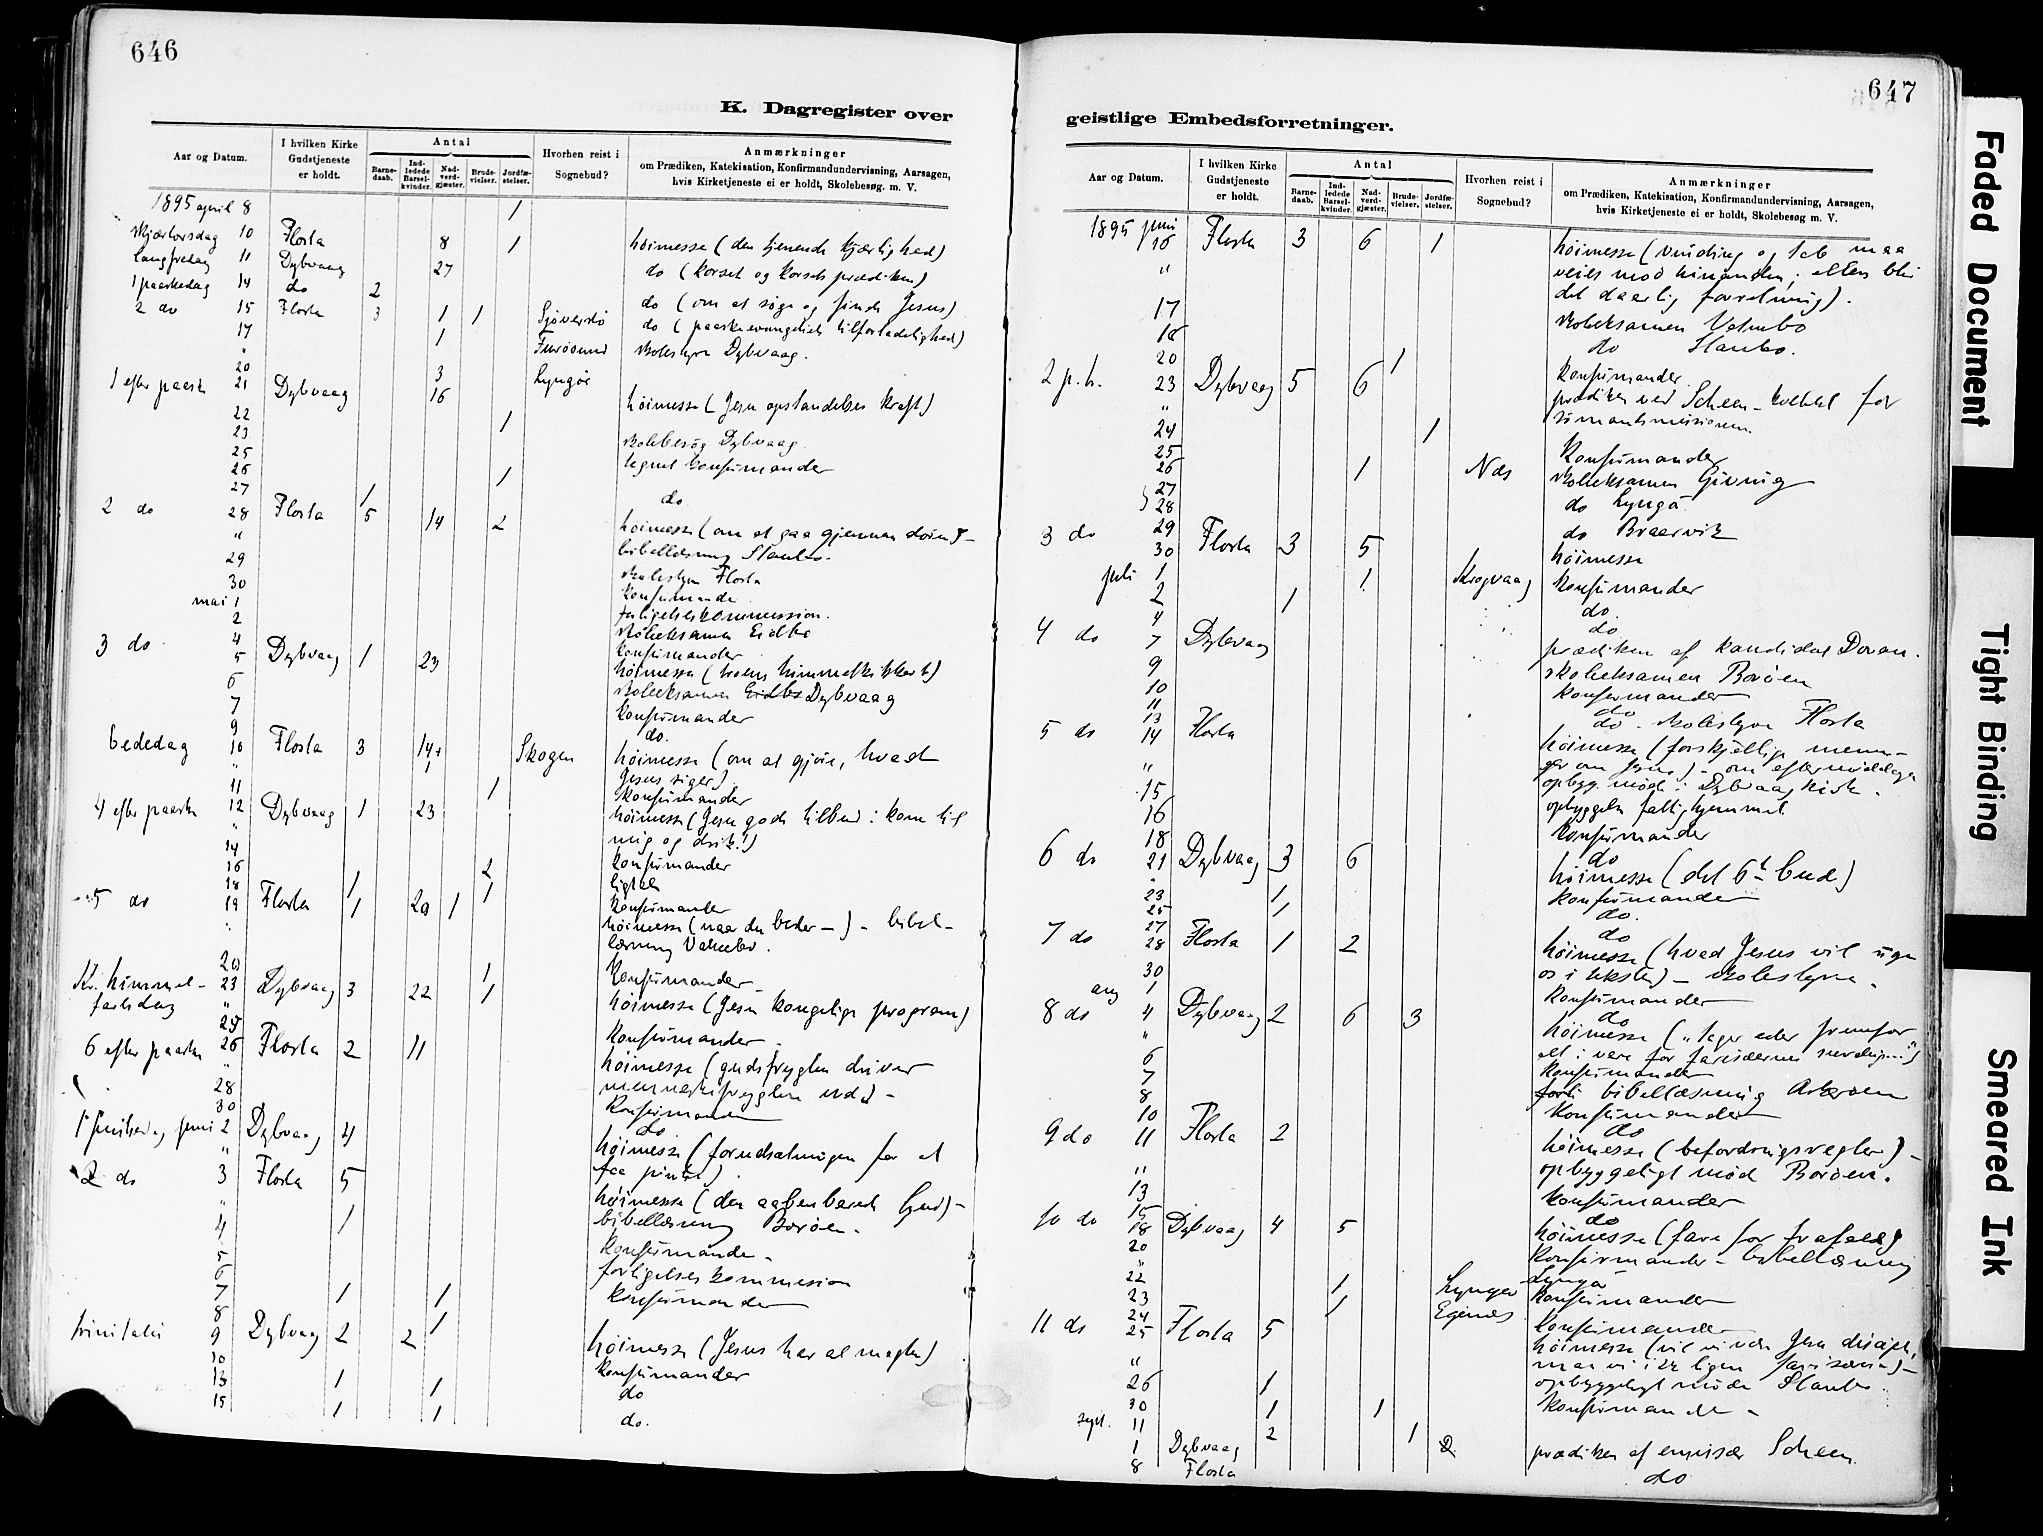 646
K. Dagregister over
Aar og Datum.
I hvilken Kirke Gudstjeneste er holdt.
Antal
Barne-daab.
Ind-ledede Barsel-kvinder.
Nad-verd-gjæster.
Brude-vielser.
Jordfæ-stelser.
Hvorhen reist i Sognebud?
Anmærkninger
om Prædiken, Katekisation, Konfirmandundervisning, Aarsagen,
hvis Kirketjeneste ei er holdt, Skolebesøg. m. V.
1895 april 8 1
skjærtorsdag 10 Flosta 8 1 høimesse (den tjenende kjærlighed)
langfredag 11 Dybvaag 27 do (korset og korsets prædiken)
1 paaskedag 14 do 2 do (om at søge og finde Jesus)
2 do 15 Flosta 3 1 1 do (paaskeevangeliets tilforladelighed)
17 1 skolestyre Dybvaag.
20 3 Lyngør
1 efter paaske 21 Dybvaag 16 høimesse (Jesu opstandelses kraft)
22 1
23 skolebesøg Dybvaag
25 tegnet konfirmander
26 1
27 1 do.
2 do 28 Flosta 5 14 2 høimesse (om at gaa gjennem døren)-
" bibellæsning Staubo.
29 skolestyre Flosta
30 konfirmander
mai 1 forligelseskommission.
2 skoleeksamen Eidbo
4 konfirmander
3 do 5 Dybvaag 1 23 høimesse
6 skoleeksamen Eidbo Dybvaag
7 konfirmander
9 do.
bededag 10 Flosta 3 14+1 Skogen høimesse (om at gjøre, hvad
" Jesus siger)
11 1 konfirmander
4 efter paaske 12 Dybvaag 1 23 høimesse (Jesu gode tilbud: kom til
" mig og drik!)
14 konfirmander
16 2
18 1 1 konfirmander
5 do 19 Flosta 1 1 høimesse (naar du beder —) - bibel-
læsning
20 1 konfirmander
Kr. himmel- 23 Dybvaag 3 22 1 høimesse (Jesu kongelige program)
fartsdag "
25 konfirmander
6 efter paaske 26 Flosta 2 11 høimesse (gudsfrygten driver
" menneskefrygten ud) -
28 konfirmander
30 do
1 juni 2 Dybvaag 4 høimesse (forudsætningen for at
" faa pintse)
2 do 3 Flosta 5 høimesse (den aabenbarede Gud)-
" bibellæsning Borøen.
4 1 konfirmander
5 forligelseskommission
6 konfirmander
7 1 1
8 1
trinitatis 9 Dybvaag 2 2 høimesse (Jesus har al magten)
10 konfirmander
13 1 1 do
15 1 1 do.
647
geistlige Embedsforretninger.
Aar og Datum.
I hvilken Kirke Gudstjeneste er holdt.
Antal
Barne-daab.
Ind-ledede Barsel-kvinder.
Nad-verd-gjæster.
Brude-vielser.
Jordfæ-stelser.
Hvorhen reist i Sognebud?
Anmærkninger
om Prædiken, Katekisation, Konfirmandundervisning, Aarsagen,
hvis Kirketjeneste ei er holdt, Skolebesøg m. V.
1895 juni 16 Flosta 3 6 1 høimesse (vinding og tab maa
" veies mod hinanden; ellers bli
det daarlig forretning).
17 skoleeksamen
18 do Staubo.
20 1 konfirmander
2 p. h. 23 Dybvaag 5 6 prædiken ved Scheen - kollekt for
" sømandsmissionen.
24 1
25 konfirmander
26 1 Næs skoleeksamen Gjeving
27 do Lyngør
28 do Braarvik
29
3 do 30 Flosta 3 5 høimesse
juli 1 1 Krogvaag konfirmander
2 1 do
4 do
4 do 7 Dybvaag prædiken af kandidat
9 skoleeksamen Borøen
10 konfirmander
11 do
13 do skolestyre Flosta
5 do 14 Flosta høimesse (forskjellige menin-
" ger om Jesus) - om eftermiddagen
opbygg. møde i Dybvaag kirke.
15 opbyggelse fattighjemmet
16 konfirmander
18 do
6 do 21 Dybvaag 3 6 høimesse (det 6te bud)
23 1 konfirmander
25 1 do.
27 do
7 do 28 Flosta 1 2 høimesse (hvad Jesus vil sige
os i teksten) - skolestyre.
30 konfirmander
aug 1 do
8 do 4 Dybvaag 2 6 3 høimesse („tager eder fremfor
" alt i vare for farisæernes surdeig")
6 konfirmander
7 bibellæsning Askerøen
8 konfirmander
10 do
9 do 11 Flosta 2 høimesse (befordringsregler) -
" opbyggeligt møde Borøen.
13 konfirmander
15 do
10 do 18 Dybvaag 4 5 høimesse (fare for frafald)
20 konfirmander - bibellæsning
" Lyngør
22 1 Lyngør konfirmander
23 1 Egenes
24 konfirmander
11 do 25 Flosta 5 høimesse (vil vi være Jesu disciple,
" maa vi ikke ligne farisæerne) -
opbyggeligt møde Staubo.
26 1
30 1 1 konfirmander
11 2 1
sept. 1 Dybvaag 2 prædiken af emissær Scheen
8 Flosta do
Faded Document
Tight Binding
Smeared Ink